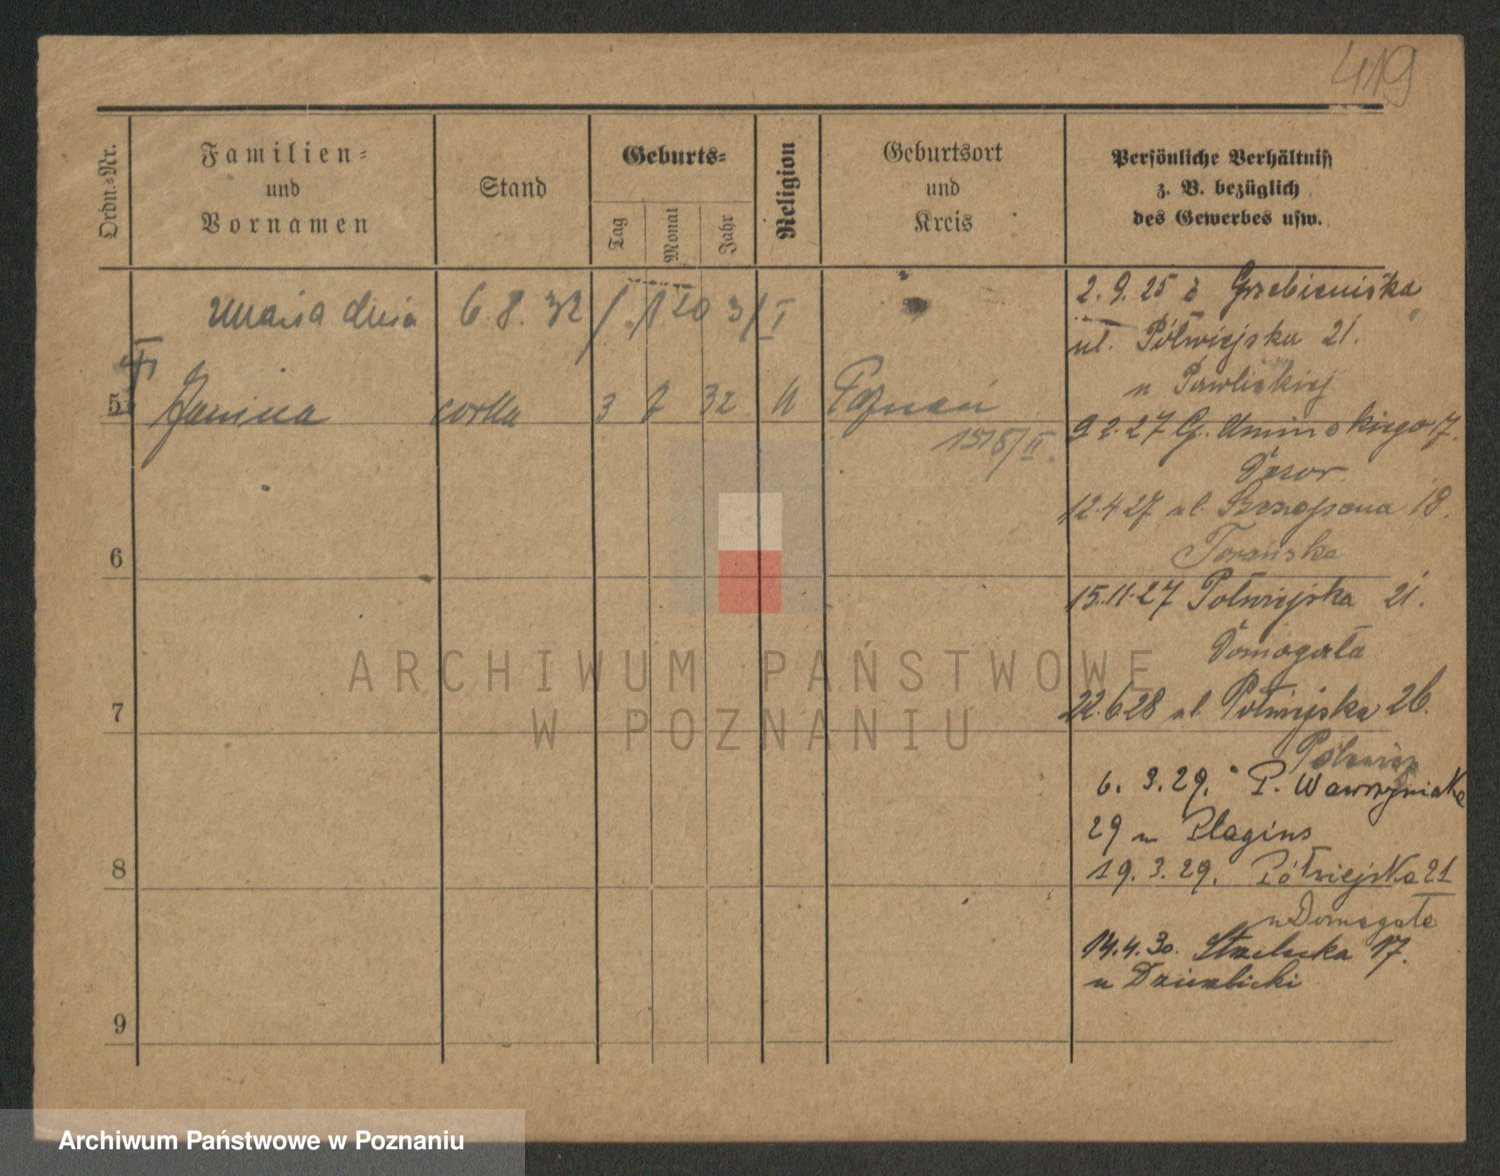 419
Ordn.-Nr.
Familien-
und
Vornamen
Stand
Geburts-
Tag
Monat
Jahr
Religion
Geburtsort
und
Kreis
Persönliche Verhältniss
z. B. bezüglich
des Gewerbes usw.
zmarła dnia 6. 8. 32
5 Janina córka 3 32 Poznań
6
7
8
9
2. 9. 25 z Grzebieniska
ul. Półwiejska 21.
u Pawlickiej
9 2. 27 17.
12.4.27 ul. 18.
15.11.27 Półwiejska 21.
Domagała
22.6.28 ul. Półwiejska 26.
6. 3. 29. P. Wawrzyniaka
29 u Plagins
19. 3. 29. Półwiejska 21
u Domagała
14.4.30. Strzelecka 17.
u Dzierzbicki
ARCHIWUM PAŃSTWOWE
W POZNANIU
Archiwum Państwowe w Poznaniu